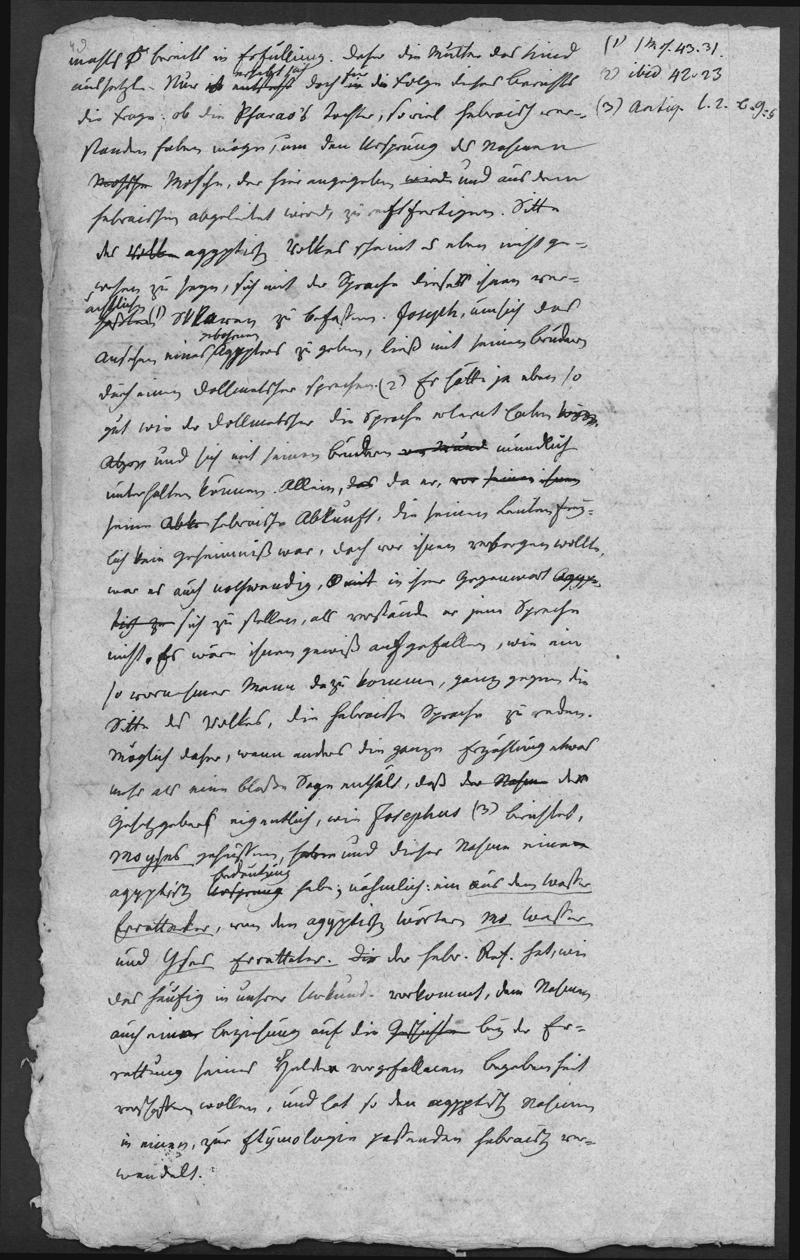 mahls bereits in Erfüllung. daher die Mutter das Kind
aussetzte. Nur erhebt sich doch für die Folge dieses Berichts
die Frage: ob die Pharao's Tochter, so viel hebraisch ver-
standen haben möge, um den Ursprung des Nahmens
Mosche, der hier angegeben und aus dem
hebraischen abgeleitet wird, zu rechtfertigen. Sitte
des agyptisch Volkes scheint es eben nicht ge-
wesen zu seyn, sich mit der Sprache dieser ihnen ver-
ächtlichen (1) Sklaven zu befassen. Joseph, um sich das
Ansehen eines gebohrenen Agypters zu geben, ließ mit seinen brüdern
durch einen Dollmetscher sprechen. (2) Er hätte ja eben so
gut wie der Dollmetscher die Sprache erlernt haben
und sich mit seinen Brüdern mündlich
unterhalten können. Allein, da er,
seine hebraische Abkunft, die seinen Leuten frey-
lich kein geheimniß war, doch vor ihnen verbergen wollte,
war es auch nothwendig, in ihrer Gegenwart
sich zu stellen, als verstände er jene Sprache
nicht. Es wäre ihnen gewiß aufgefallen, wie ein
so vornehmer Mann dazu komme, ganz gegen die
Sitte des Volkes, die hebraische Sprache zu reden.
Möglich daher, wenn anders die ganze Erzählung etwas
mehr als eine bloße Sage enthält, daß der
Gesetzgeber eigentlich, wie Josephus (3) berichtet,
Moyses geheissen, und dieser Nahme eine
agyptisch bedeutung habe; nähmlich: ein aus dem Wasser
Erretteter, von den agyptisch Wörtern Mo Wasser
und Yses Erretteter. der hebr. Ref. hat, wie
das häufig in unsrer Urkunde vorkommt, dem Nahmen
auch eine beziehung auf die bey der Er-
rettung seines Helden vorgefallenen begebenheit
verschaffen wollen, und hat so den agyptisch Nahmen
in einen, zur Etymologie passenden hebraisch ver-
wandelt.
(1) 1 Mos. 43. 31.
(2) ibid 42. 23
(3) Antiq. l. 2. c. 9.